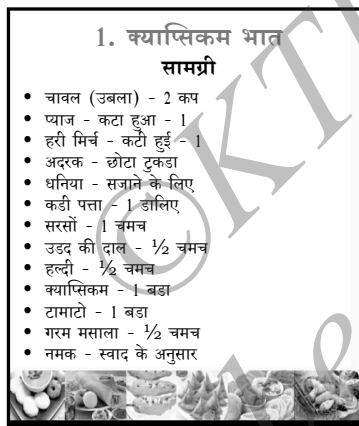 1. क्याप्सिकम भात
सामग्री
• चावल (उबला) - 2 कप
• प्याज - कटा हुआ - 1
• हरी मिर्च - कटी हुई - 1
• अदरक - छोटा टुकडा
• धनिया - सजाने के लिए
• कडी पत्ता - 1 डालिए
• सरसों - 1 चमच
• उडद की दाल - ½ चमच
• हल्दी - ½ चमच
• क्याप्सिकम - 1 बडा
• टामाटो - 1 बडा
• गरम मसाला - ½ चमच
• नमक - स्वाद के अनुसार